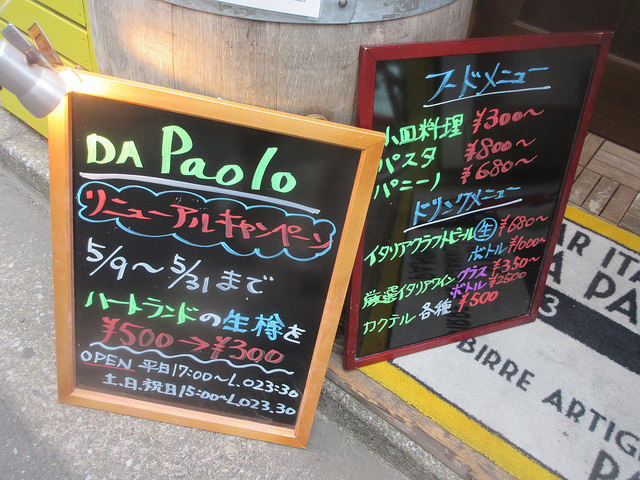 DA Paolo
リニューアルキャンペーン
5/9～5/31まで
ハートランドの生樽を
¥500→¥300
OPEN 平日17:00～L.O23:30
土.日.祝日15:00～LO23.30
フードメニュー
小皿料理 ¥300～
パスタ ¥800～
パニーノ ¥680～
ドリンクメニュー
イタリアクラフトビール 生 ¥680～
ボトル ¥1000～
厳選イタリアワイン グラス ¥350～
ボトル ¥2500
カクテル 各種 ¥500
R IT
A PA
3
BIRRE ARTIG